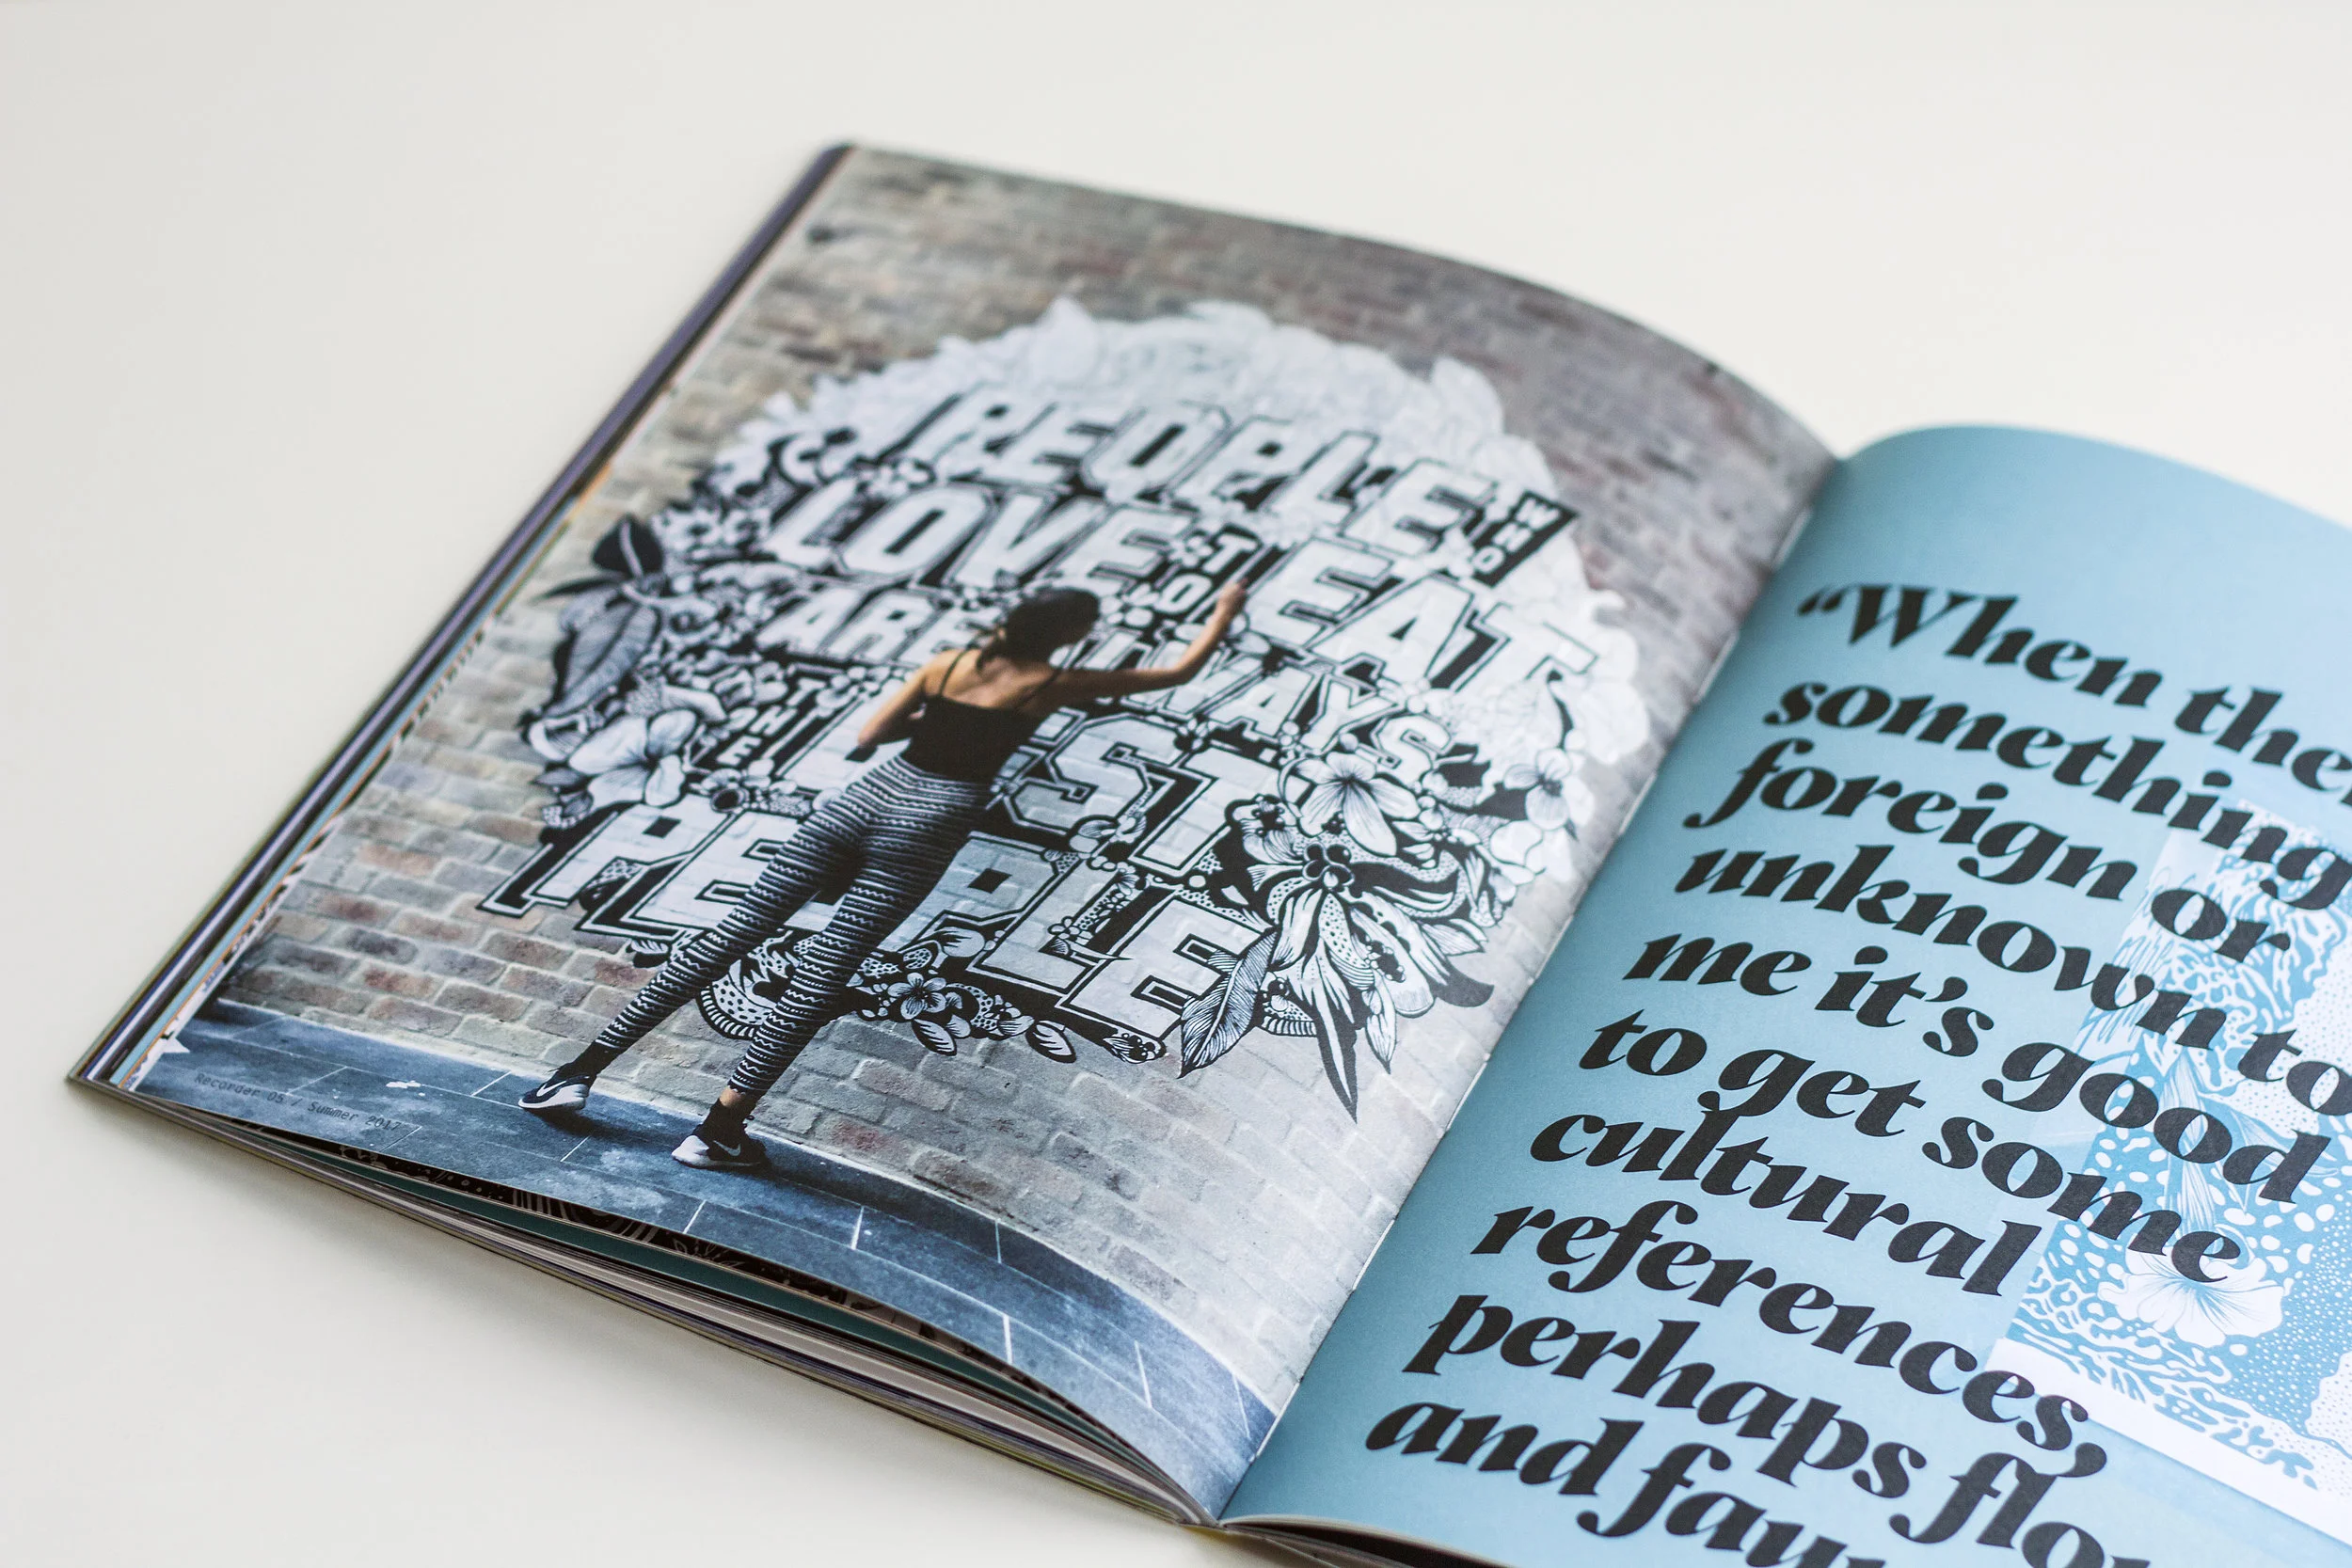 PEOPLE WHO
LOVE TO EAT
ARE ALWAYS
THE BEST
PEOPLE
Recorder 05 / Summer 2017
“When
something
foreign or
unknown to
me it’s good
to get some
cultural
references,
perhaps
and